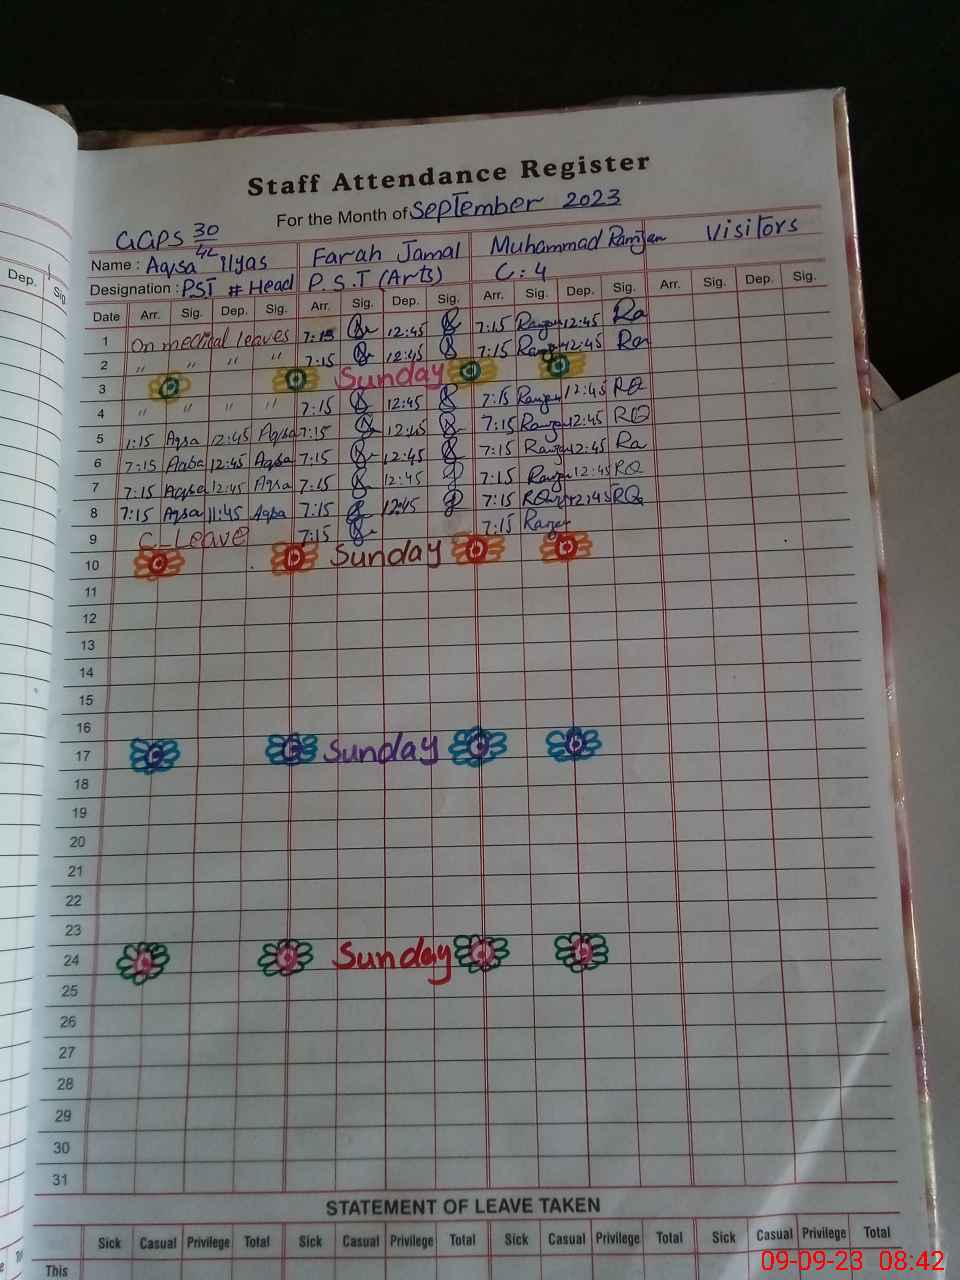 Staff Attendance Register
For the Month of September 2023
GGPS 30/4L
Name : Aqsa Ilyas Farah Jamal Muhammad Ramjan Visitors
Designation : PST # Head P.S.T (Arts) C:4
Dep. Sig.
Date Arr. Sig. Dep. Sig. Arr. Sig. Dep. Sig. Arr. Sig. Dep. Sig. Arr. Sig. Dep. Sig.
1 On medical leaves 7:15 12:45 7:15 Ramjan 12:45 Ra
2 " " " " 7:15 12:45 7:15 Ramjan 12:45 Ra
3 Sunday
4 " " " " 7:15 12:45 7:15 Ramjan 12:45 RQ
5 7:15 Aqsa 12:45 Aqsa 7:15 12:45 7:15 Ramjan 12:45 RQ
6 7:15 Aqsa 12:45 Aqsa 7:15 12:45 7:15 Ramjan 12:45 Ra
7 7:15 Aqsa 12:45 Aqsa 7:15 12:45 7:15 Ramjan 12:45 RQ
8 7:15 Aqsa 11:45 Aqsa 7:15 12:45 7:15 12:45 RQ
9 C-Leave 7:15 7:15 Ramjan
10 Sunday
11
12
13
14
15
16
17 Sunday
18
19
20
21
22
23
24 Sunday
25
26
27
28
29
30
31
STATEMENT OF LEAVE TAKEN
Sick Casual Privilege Total Sick Casual Privilege Total Sick Casual Privilege Total Sick Casual Privilege Total
This
09-09-23 08:42